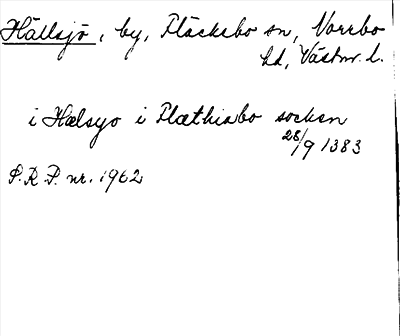 Hällsjö, by, Fläckebo sn, Norrbo
hd, Västm. l.
i Hælsyo i Flæthiabo socken
28/9 1383
S.R.P. nr. 1962